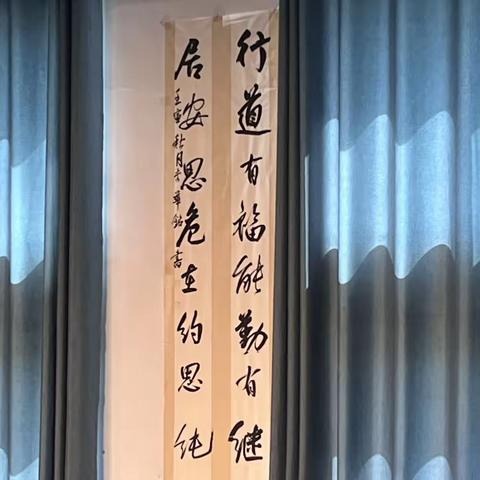 行道有福能勤有继
居安思危在约思纯
壬寅秋月
书